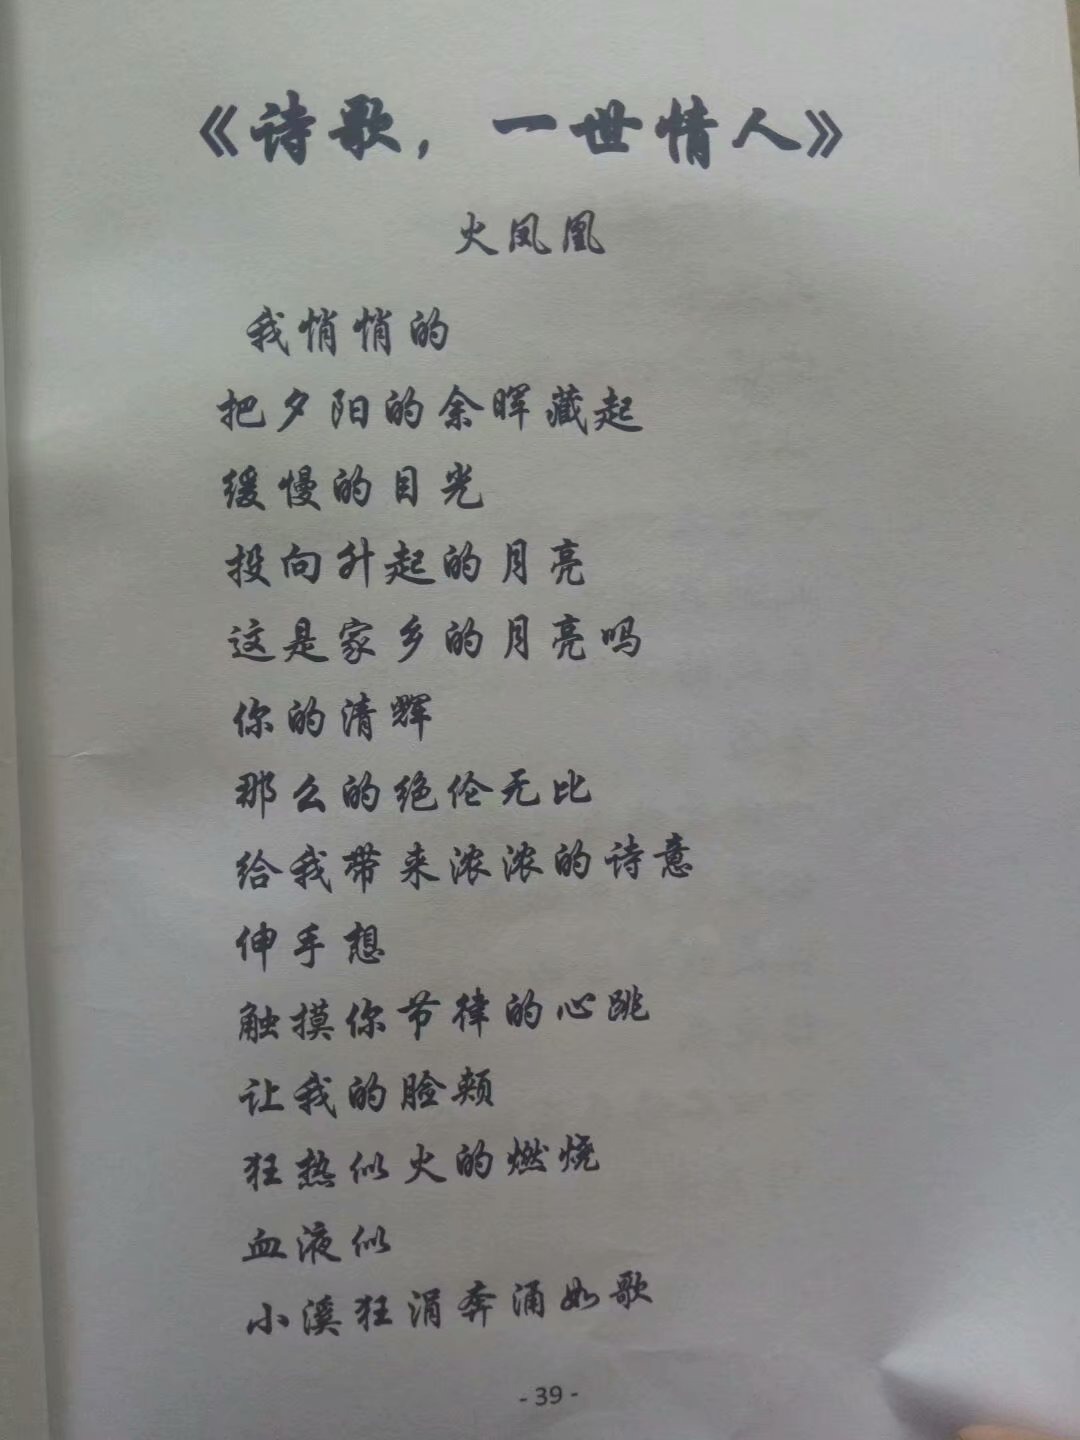 《诗歌，一世情人》
火凤凰
我悄悄的
把夕阳的余晖藏起
缓慢的目光
投向升起的月亮
这是家乡的月亮吗
你的清辉
那么的绝伦无比
给我带来浓浓的诗意
伸手想
触摸你节律的心跳
让我的脸颊
狂热似火的燃烧
血液似
小溪狂涓奔涌如歌
- 39 -